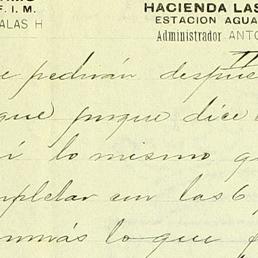 F. I. M.
ALAS H
HACIENDA LAS
ESTACION AGUA
Administrador ANTO
II
e pedirán despue
que porque dice
i lo mismo q
mpletar con las 6
más lo que